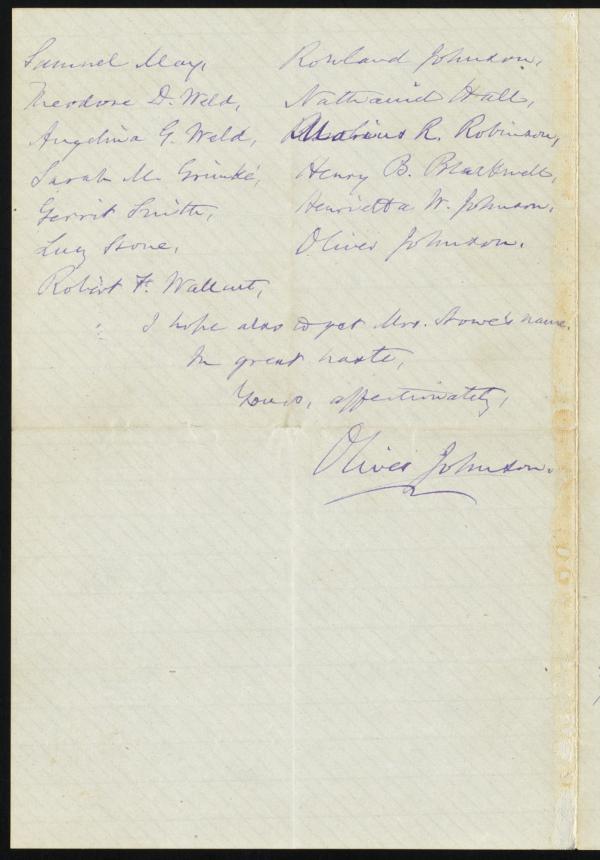 Samuel May, Rowland Johnson,
Theodore D. Weld, Nathaniel Hall,
Angelina G. Weld, Marius R. Robinson,
Sarah M. Grimké, Henry B. Blackwell,
Gerrit Smith, Henrietta W. Johnson,
Lucy Stone, Oliver Johnson.
Robert F. Wallcut,
I hope also to get Mrs. Stowe's name.
In great haste,
Yours, affectionately,
Oliver Johnson.